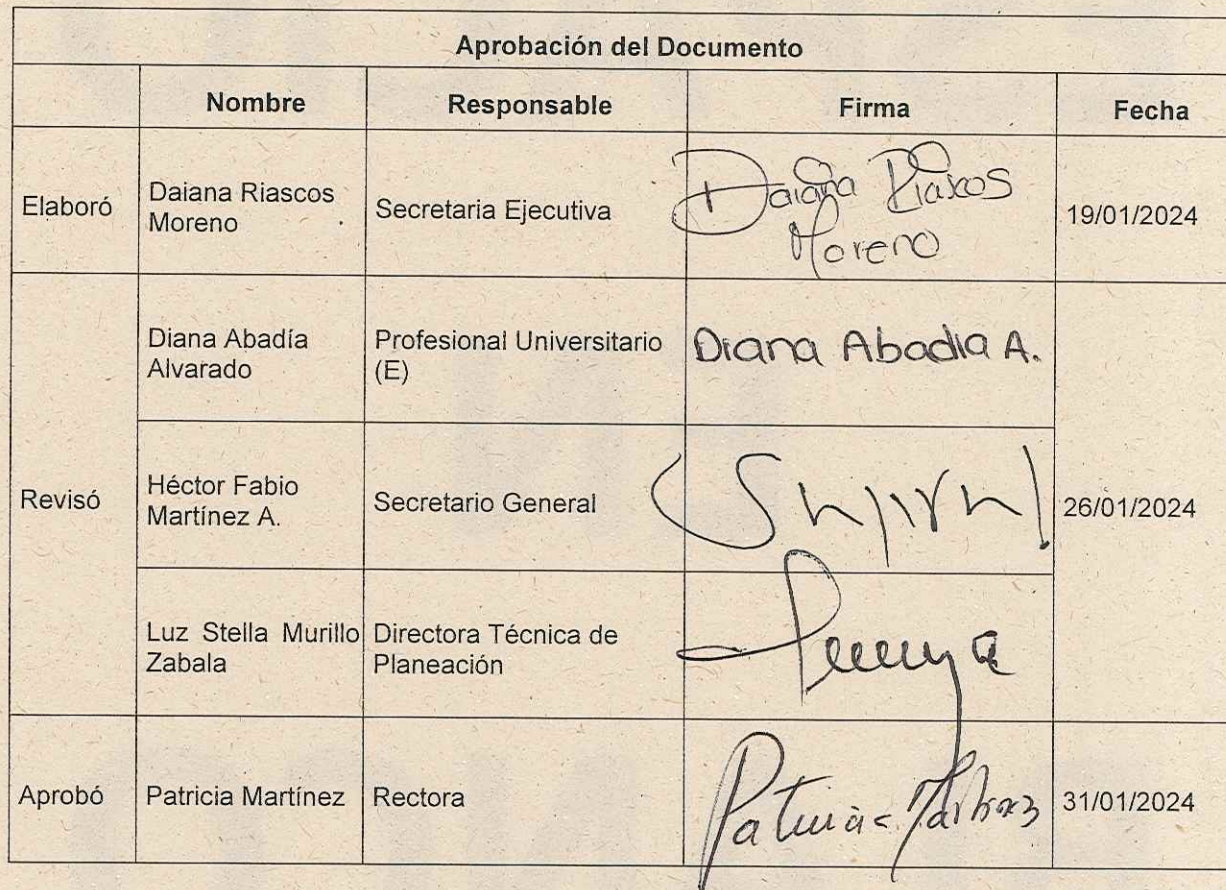 Aprobación del Documento
Nombre Responsable Firma Fecha
Elaboró
Daiana Riascos
Moreno
Secretaria Ejecutiva
Daiana Riascos
Moreno
19/01/2024
Revisó
Diana Abadía
Alvarado
Profesional Universitario
(E)
Diana Abadia A.
Héctor Fabio
Martínez A.
Secretario General
26/01/2024
Luz Stella Murillo
Zabala
Directora Técnica de
Planeación
Aprobó
Patricia Martínez
Rectora
Patricia Martínez
31/01/2024